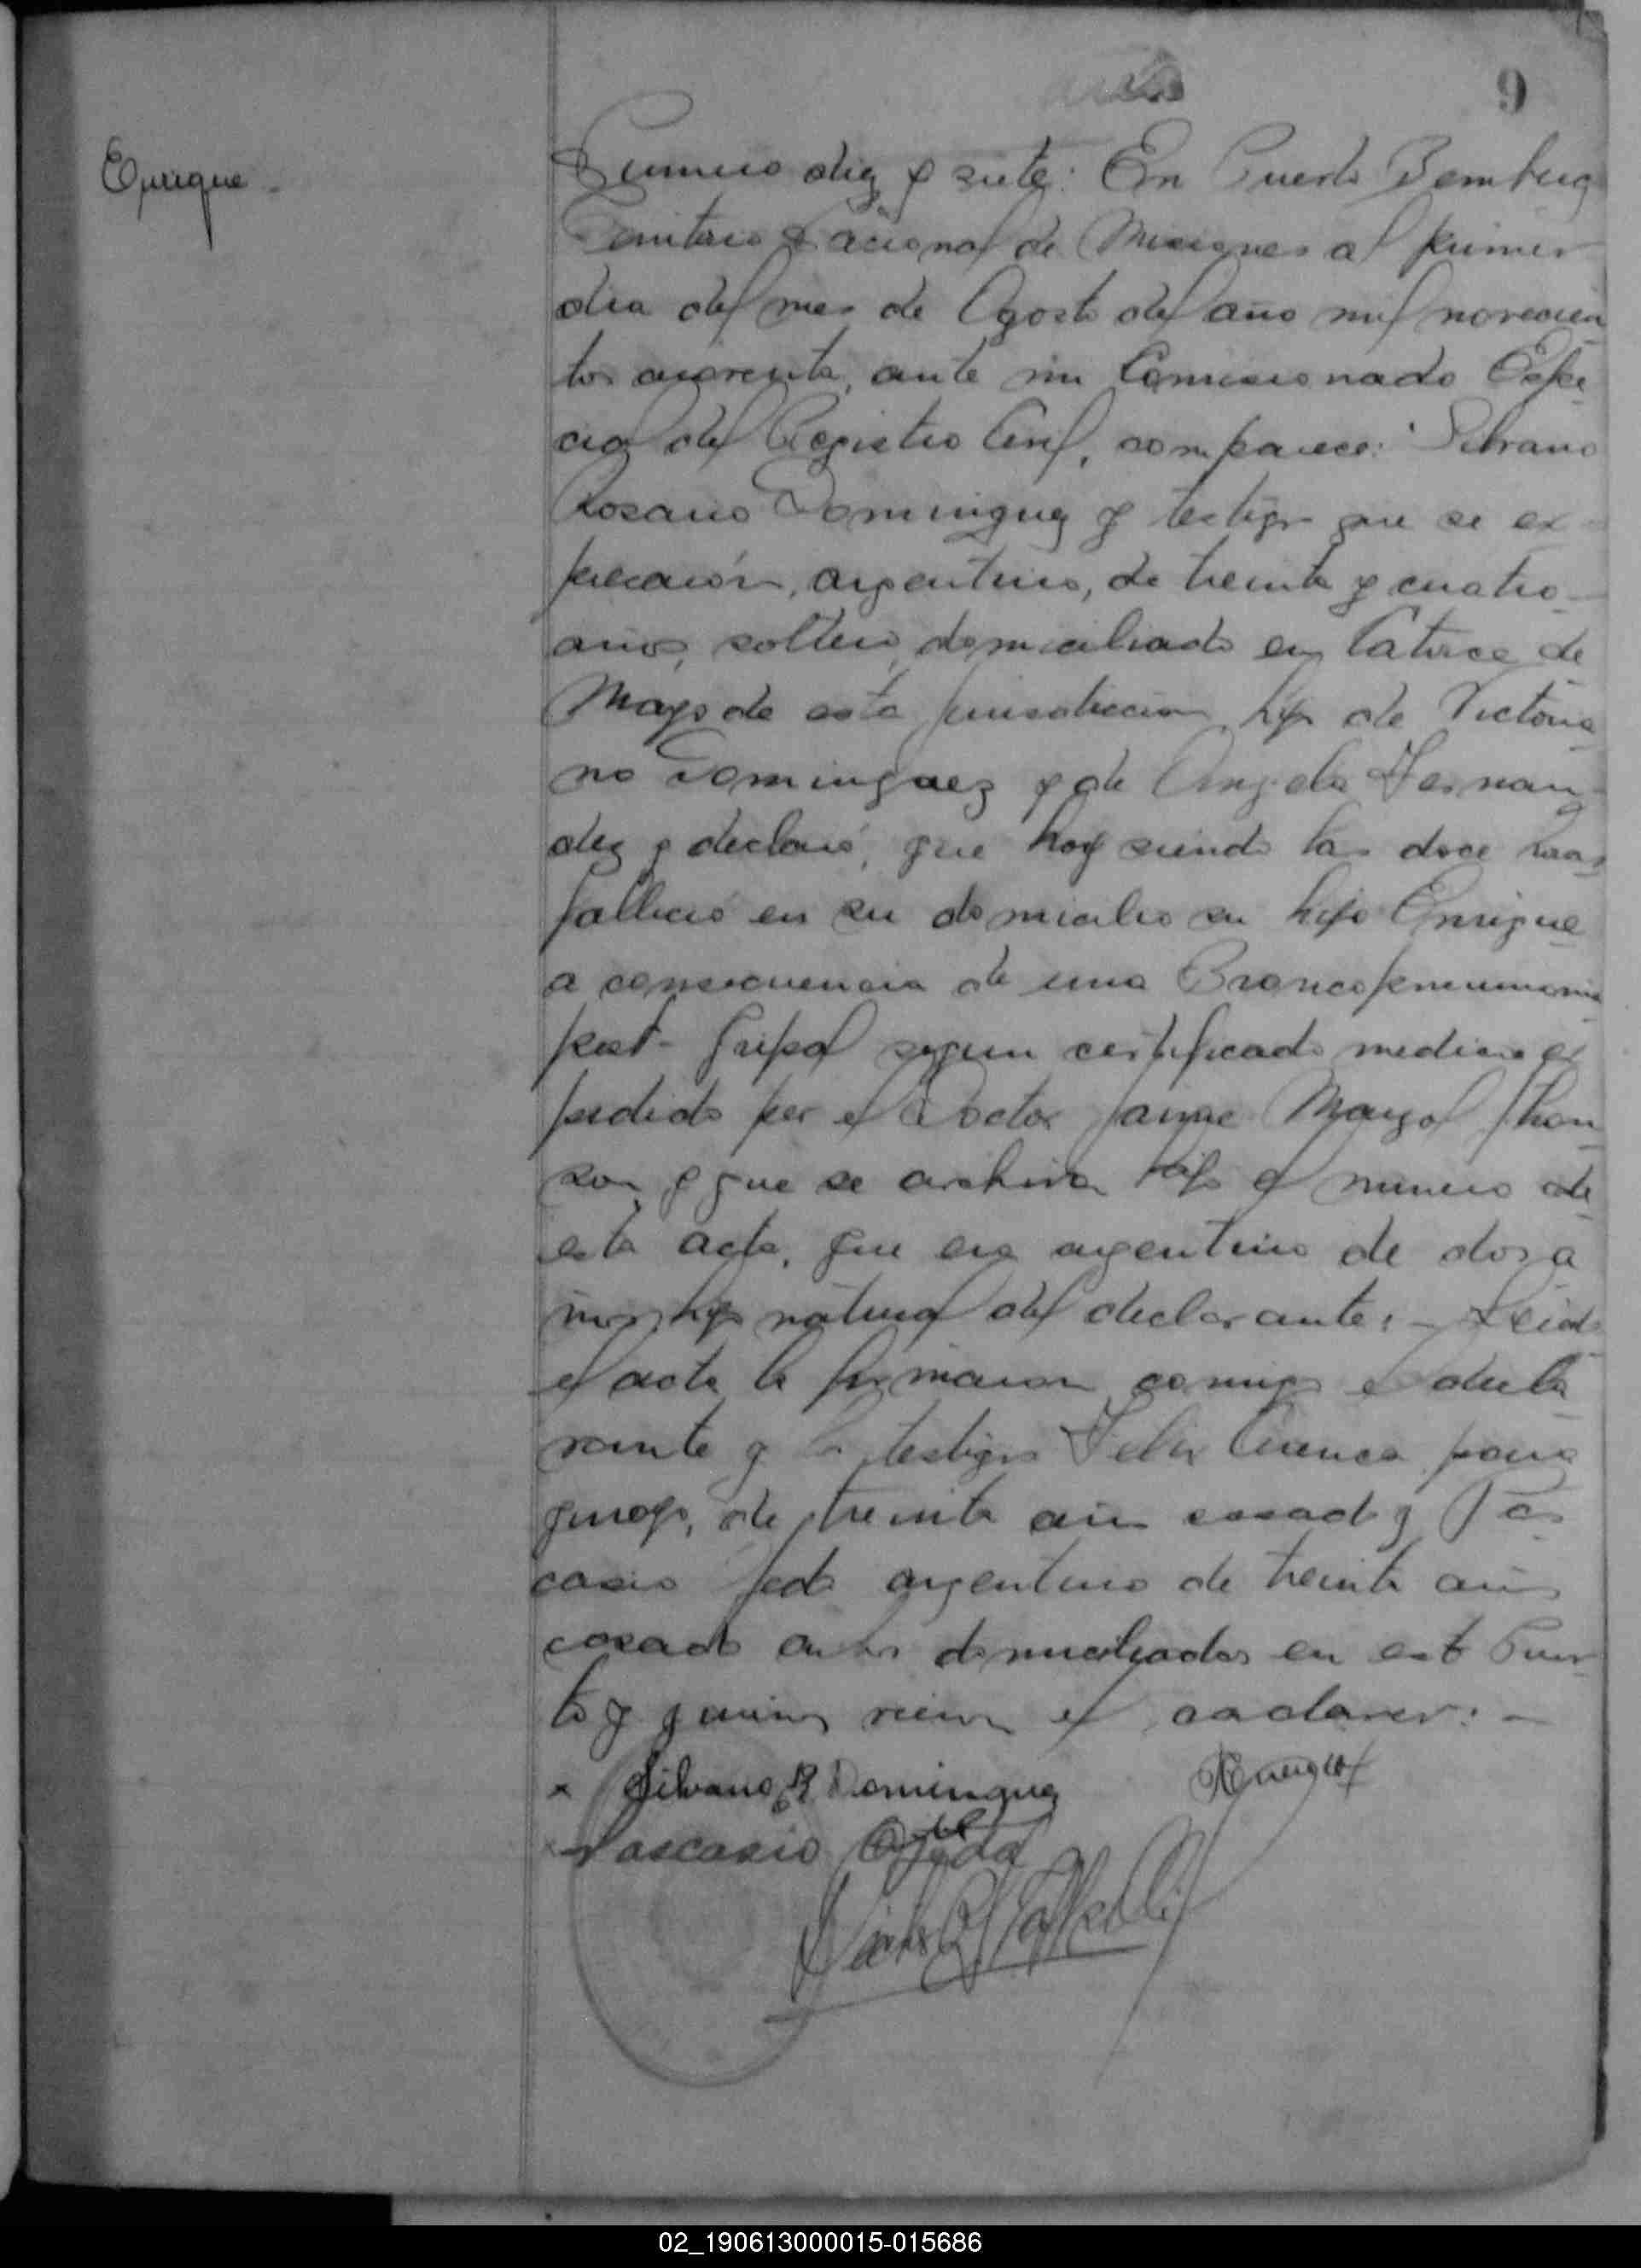 9
Enrique
Numero diez y siete: En Puerto Bemberg
Territorio Nacional de Misiones al primer
dia del mes de Agosto del año mil novecien
tos cuarenta, ante mi Comisionado Espe
cial del Registro Civil, comparece: Silvano
Rosario Dominguez y testigos que se ex
presarán, argentino, de treinta y cuatro
años, soltero, domiciliado en Catorce de
Mayo de esta jurisdiccion hijo de Victoria
no Dominguez y de Angela Fernan
dez y declaró, que hoy siendo las doce horas
fallecio en su domicilio su hijo Enrique
a consecuencia de una Broncopneumonia
post-Gripal segun certificado medico ex
pedido por el Doctor Jaime Jhon
son y que se archiva bajo el numero de
esta acta, que era argentino de dos a
ños, hijo natural del declarante:- Leida
el acta la firmaron conmigo el decla
rante y los testigos Felix Cuenca para
guayo, de treinta años casado y Pas
casio argentino de treinta años
casado ambos domiciliados en este Puer
to y quienes vieron el cadaver:-
x Silvano R Dominguez
x Pascasio Ojeda
02_190613000015-015686